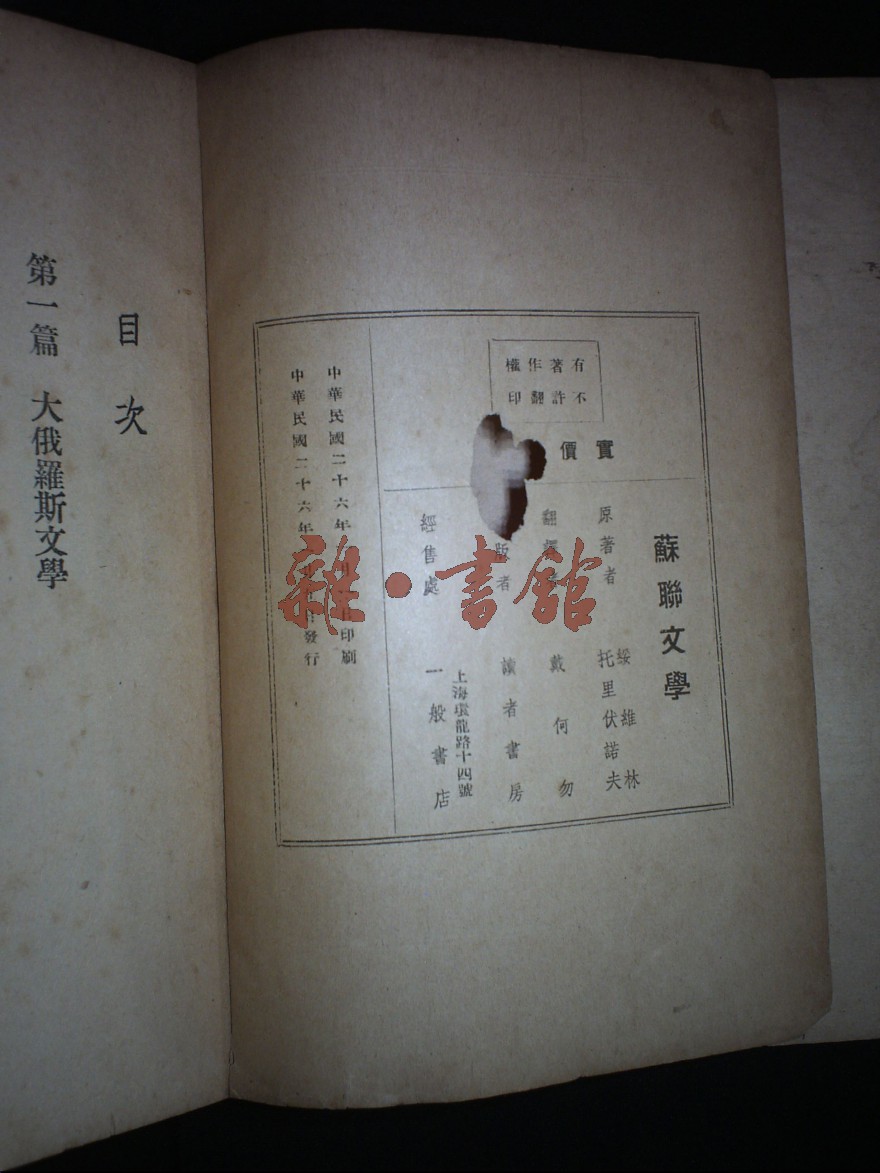 蘇聯文學
有著作權
不許翻印
實價
原著者 綏維林
托里伏諾夫
翻譯者 戴何勿
版者 讀者書房
經售處 上海環龍路十四號
一般書店
中華民國二十六年 印刷
中華民國二十六年 發行
目次
第一篇 大俄羅斯文學
雜·書館